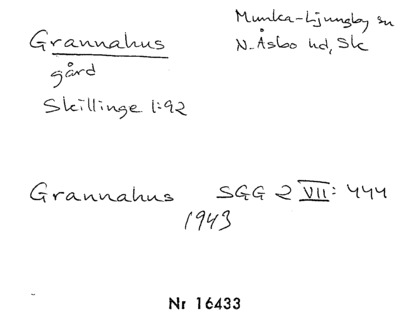 Grannahus
Munka-Ljungby sn
N. Åsbo hd, Sk
gård
Skillinge 1:92
Grannahus SGG 2 VII: 444
1943
Nr 16433